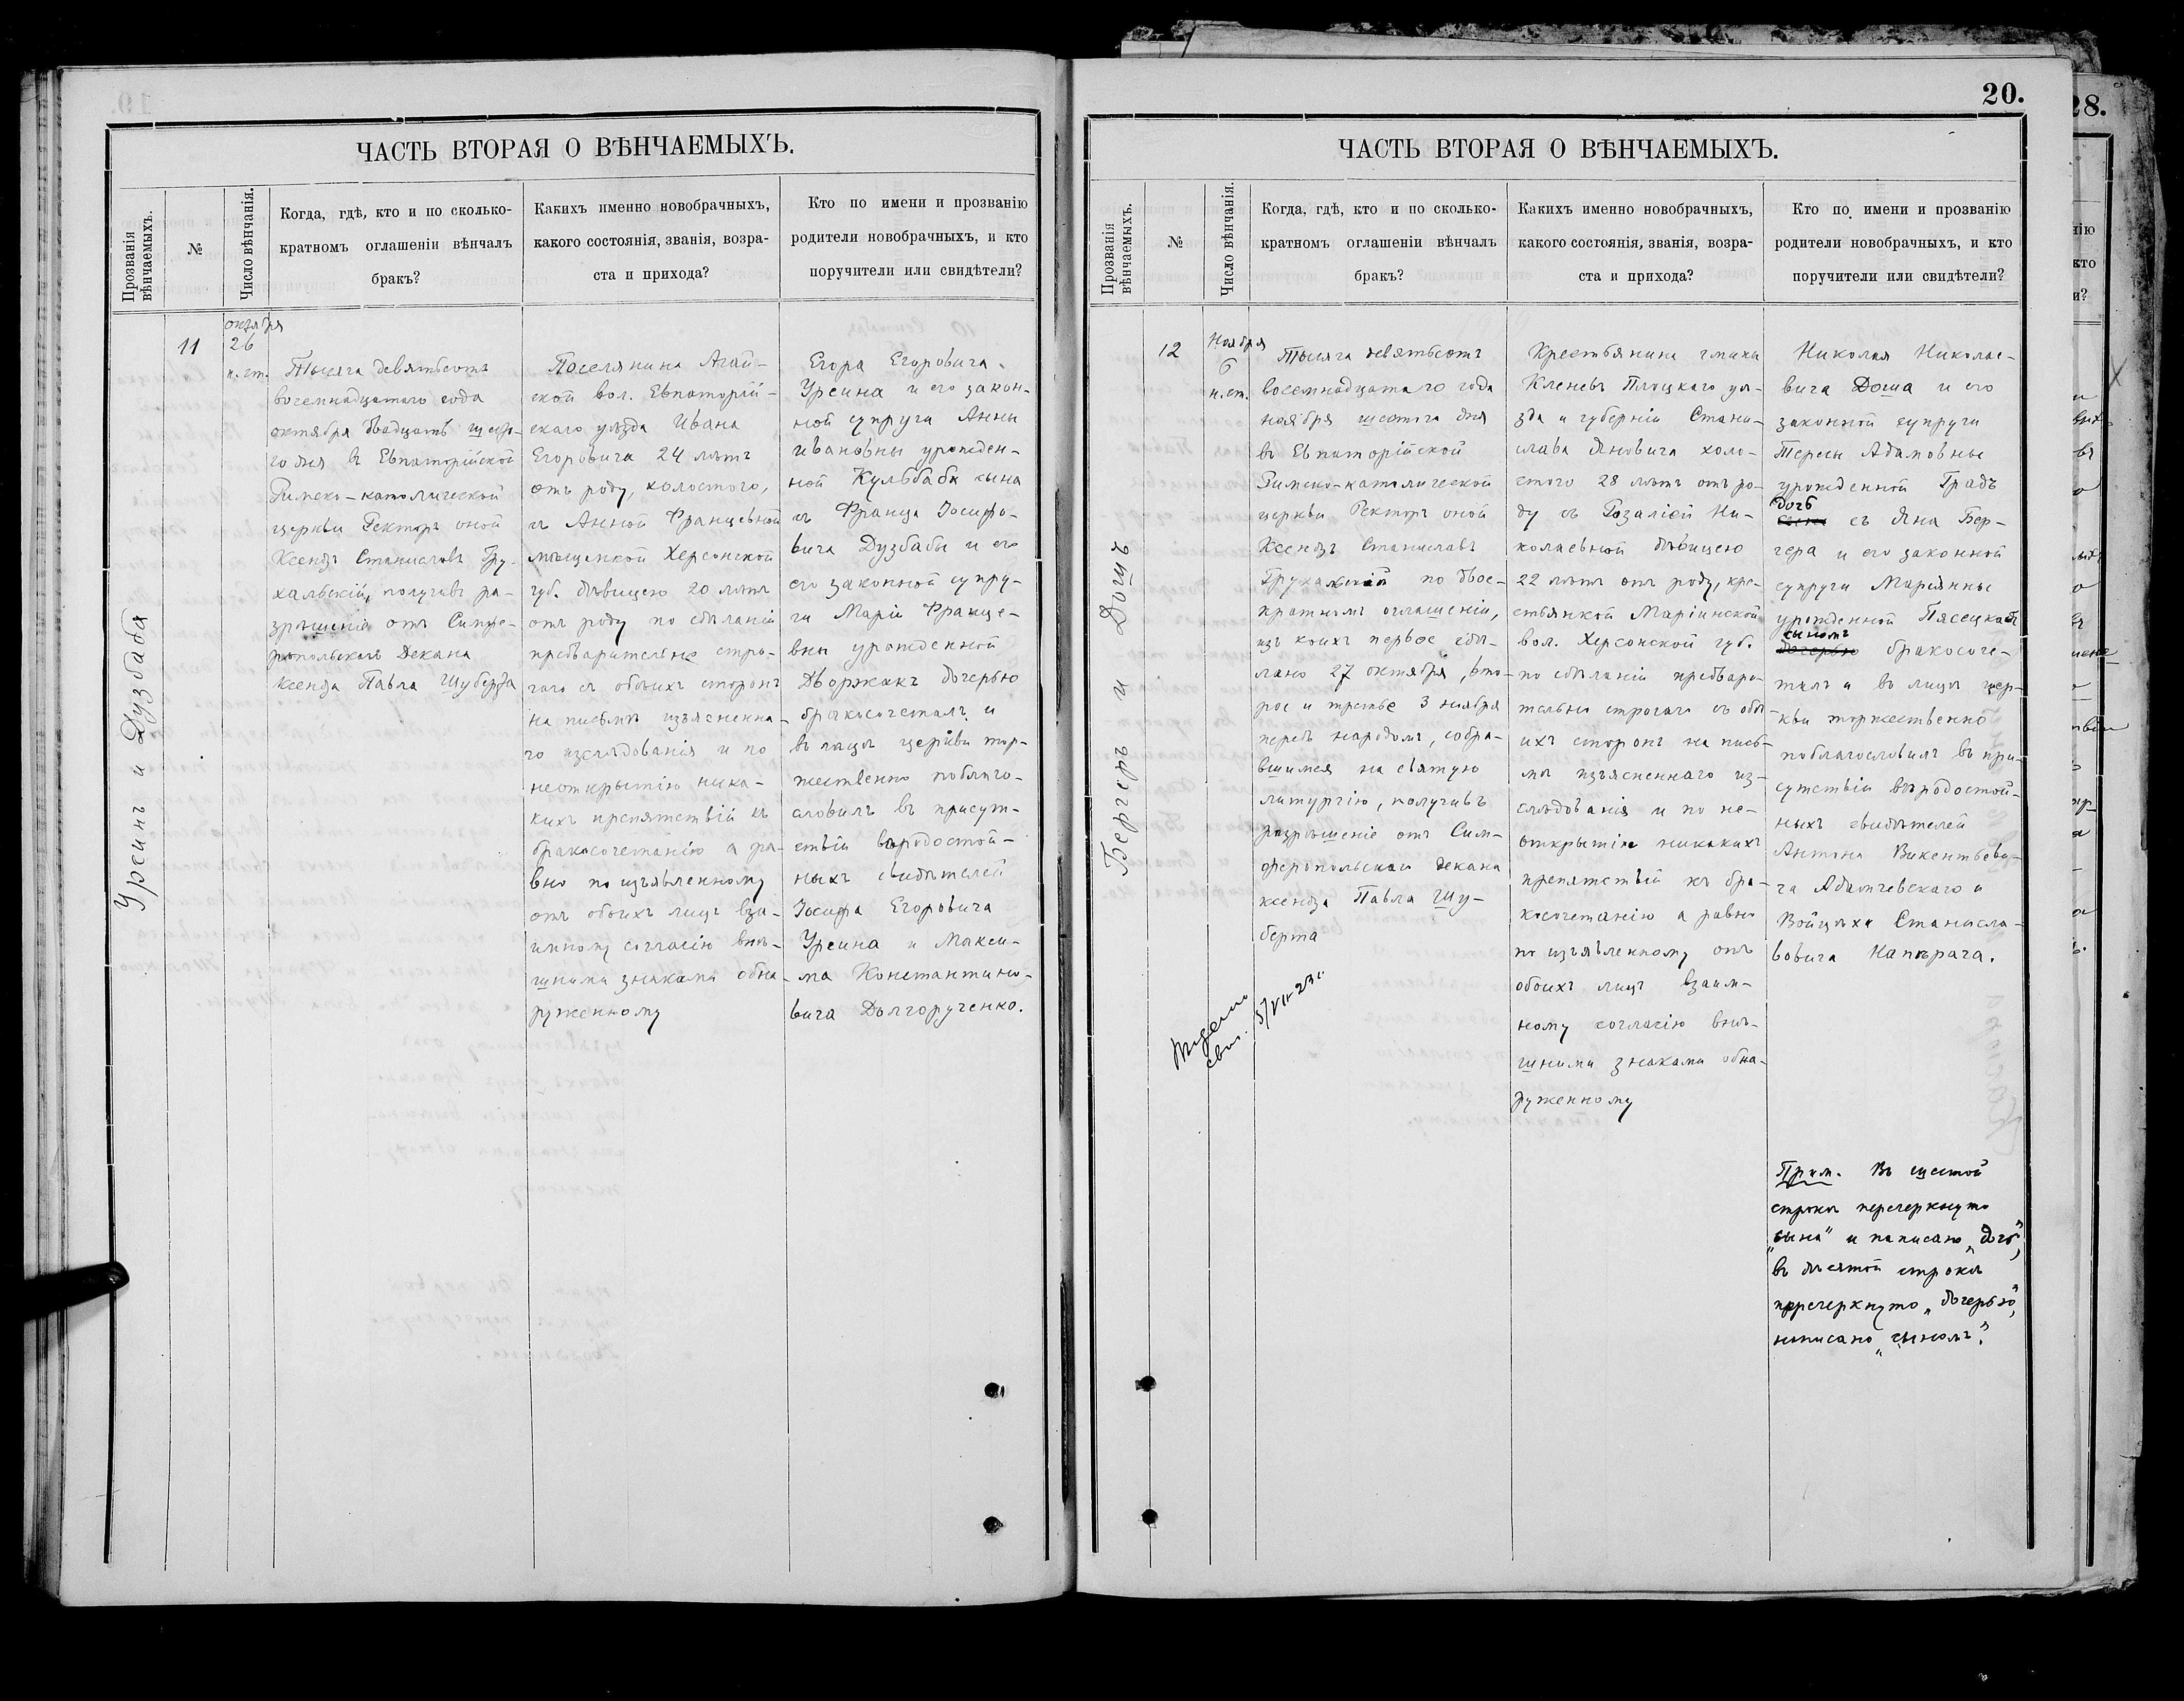 ЧАСТЬ ВТОРАЯ О ВѢНЧАЕМЫХЪ.
Прозванія вѣнчаемыхъ.
№
Число вѣнчанія.
Когда, гдѣ, кто и по сколько-
кратномъ оглашеніи вѣнчалъ
бракъ?
Какихъ именно новобрачныхъ,
какого состоянія, званія, возра-
ста и прихода?
Кто по имени и прозванію
родители новобрачныхъ, и кто
поручители или свидѣтели?
Урсинъ и Дузбаба
11
октября
26
н. ст.
Тысяча девятьсотъ
восемнадцатаго года
октября двадцать шесто-
го дня въ Евпаторійской
Римско-католической
церкви Ректоръ оной
Ксендзъ Станиславъ Гру-
хальскій, получивъ ра-
зрѣшеніе отъ Симфе-
ропольскаго Декана
Ксендза Павла Шуберта
Поселянина Агай-
ской вол. Евпаторій-
скаго уѣзда Ивана
Егоровича 24 лѣтъ
отъ роду, холостого,
съ Анной Францевной
мѣщанкой Херсонской
губ. дѣвицею 20 лѣтъ
отъ роду по сдѣланіи
предварительно стро-
гаго съ обоихъ сторонъ
на письмѣ изъясненна-
го изслѣдованія и по
неоткрытію ника-
кихъ препятствій къ
бракосочетанію а ра-
вно по изъявленному
отъ обоихъ лицъ вза-
имному согласію внѣ-
шними знаками обна-
руженному
Егора Егоровича
Урсина и его закон-
ной супруги Анны
Ивановны урожден-
ной Кульбаба сына
съ Франца Іосифо-
вича Дузбабы и его
его законной супру-
ги Маріи Францe-
вны урожденной
Дворжакъ дочерью
бракосочеталъ и
въ лицѣ церкви тор-
жественно поблаго-
словилъ въ присут-
ствіи вѣродостой-
ныхъ свидѣтелей
Іосифа Егоровича
Урсина и Макси-
ма Константино-
вича Долгорученко.
20.
ЧАСТЬ ВТОРАЯ О ВѢНЧАЕМЫХЪ.
Прозванія вѣнчаемыхъ.
№
Число вѣнчанія.
Когда, гдѣ, кто и по сколько-
кратномъ оглашеніи вѣнчалъ
бракъ?
Какихъ именно новобрачныхъ,
какого состоянія, званія, возра-
ста и прихода?
Кто по имени и прозванію
родители новобрачныхъ, и кто
поручители или свидѣтели?
Бергеръ и Дошъ
12
Ноября
6
н. ст.
Тысяча девятьсотъ
восемнадцатаго года
ноября шестого дня
въ Евпаторійской
Римско-католической
церкви Ректоръ оной
Ксендзъ Станиславъ
Грухальскій по двое-
кратномъ оглашеніи,
изъ коихъ первое сдѣ-
лано 27 октября, вто-
рое и третье 3 ноября
передъ народомъ, собра-
вшимся на святую
литургію, получивъ
разрѣшеніе отъ Сим-
феропольскаго Декана
ксендза Павла Шу-
берта
5/VII-23 г.
Крестьянина гмины
Кленевъ Плоцкаго уѣ-
зда и губерніи Стани-
слава Яновича холо-
стого 28 лѣтъ отъ ро-
ду съ Розаліей Ни-
колаевной дѣвицею
22 лѣтъ отъ роду, кре-
стьянкой Маріинской
вол. Херсонской губ.
по сдѣланіи предвари-
тельно строгаго съ обо-
ихъ сторонъ на пись-
мѣ изъясненнаго из-
слѣдованія и по не-
открытію никакихъ
препятствій къ бра-
косочетанію а равно
по изъявленному отъ
обоихъ лицъ взаим-
ному согласію внѣ-
шними знаками обна-
руженному
Николая Николае-
вича Доша и его
законной супруги
Тересы Адамовны
урожденной Градъ
дочь
сына съ Яна Бер-
гера и его законной
супруги Маріянны
урожденной Пясецкой
сыномъ
дочерью бракосоче-
талъ и въ лицѣ цер-
кви торжественно
поблагословилъ въ при-
сутствіи вѣродостой-
ныхъ свидѣтелей
Антона Викентьеви-
ча Адамчевскаго и
Войцѣха Станисла-
вовича Напѣрача.
Прим. Въ шестой
строкѣ перечеркнуто
„сына" и написано „дочь",
въ десятой строкѣ
перечеркнуто „дочерью",
написано „сыномъ".
28.